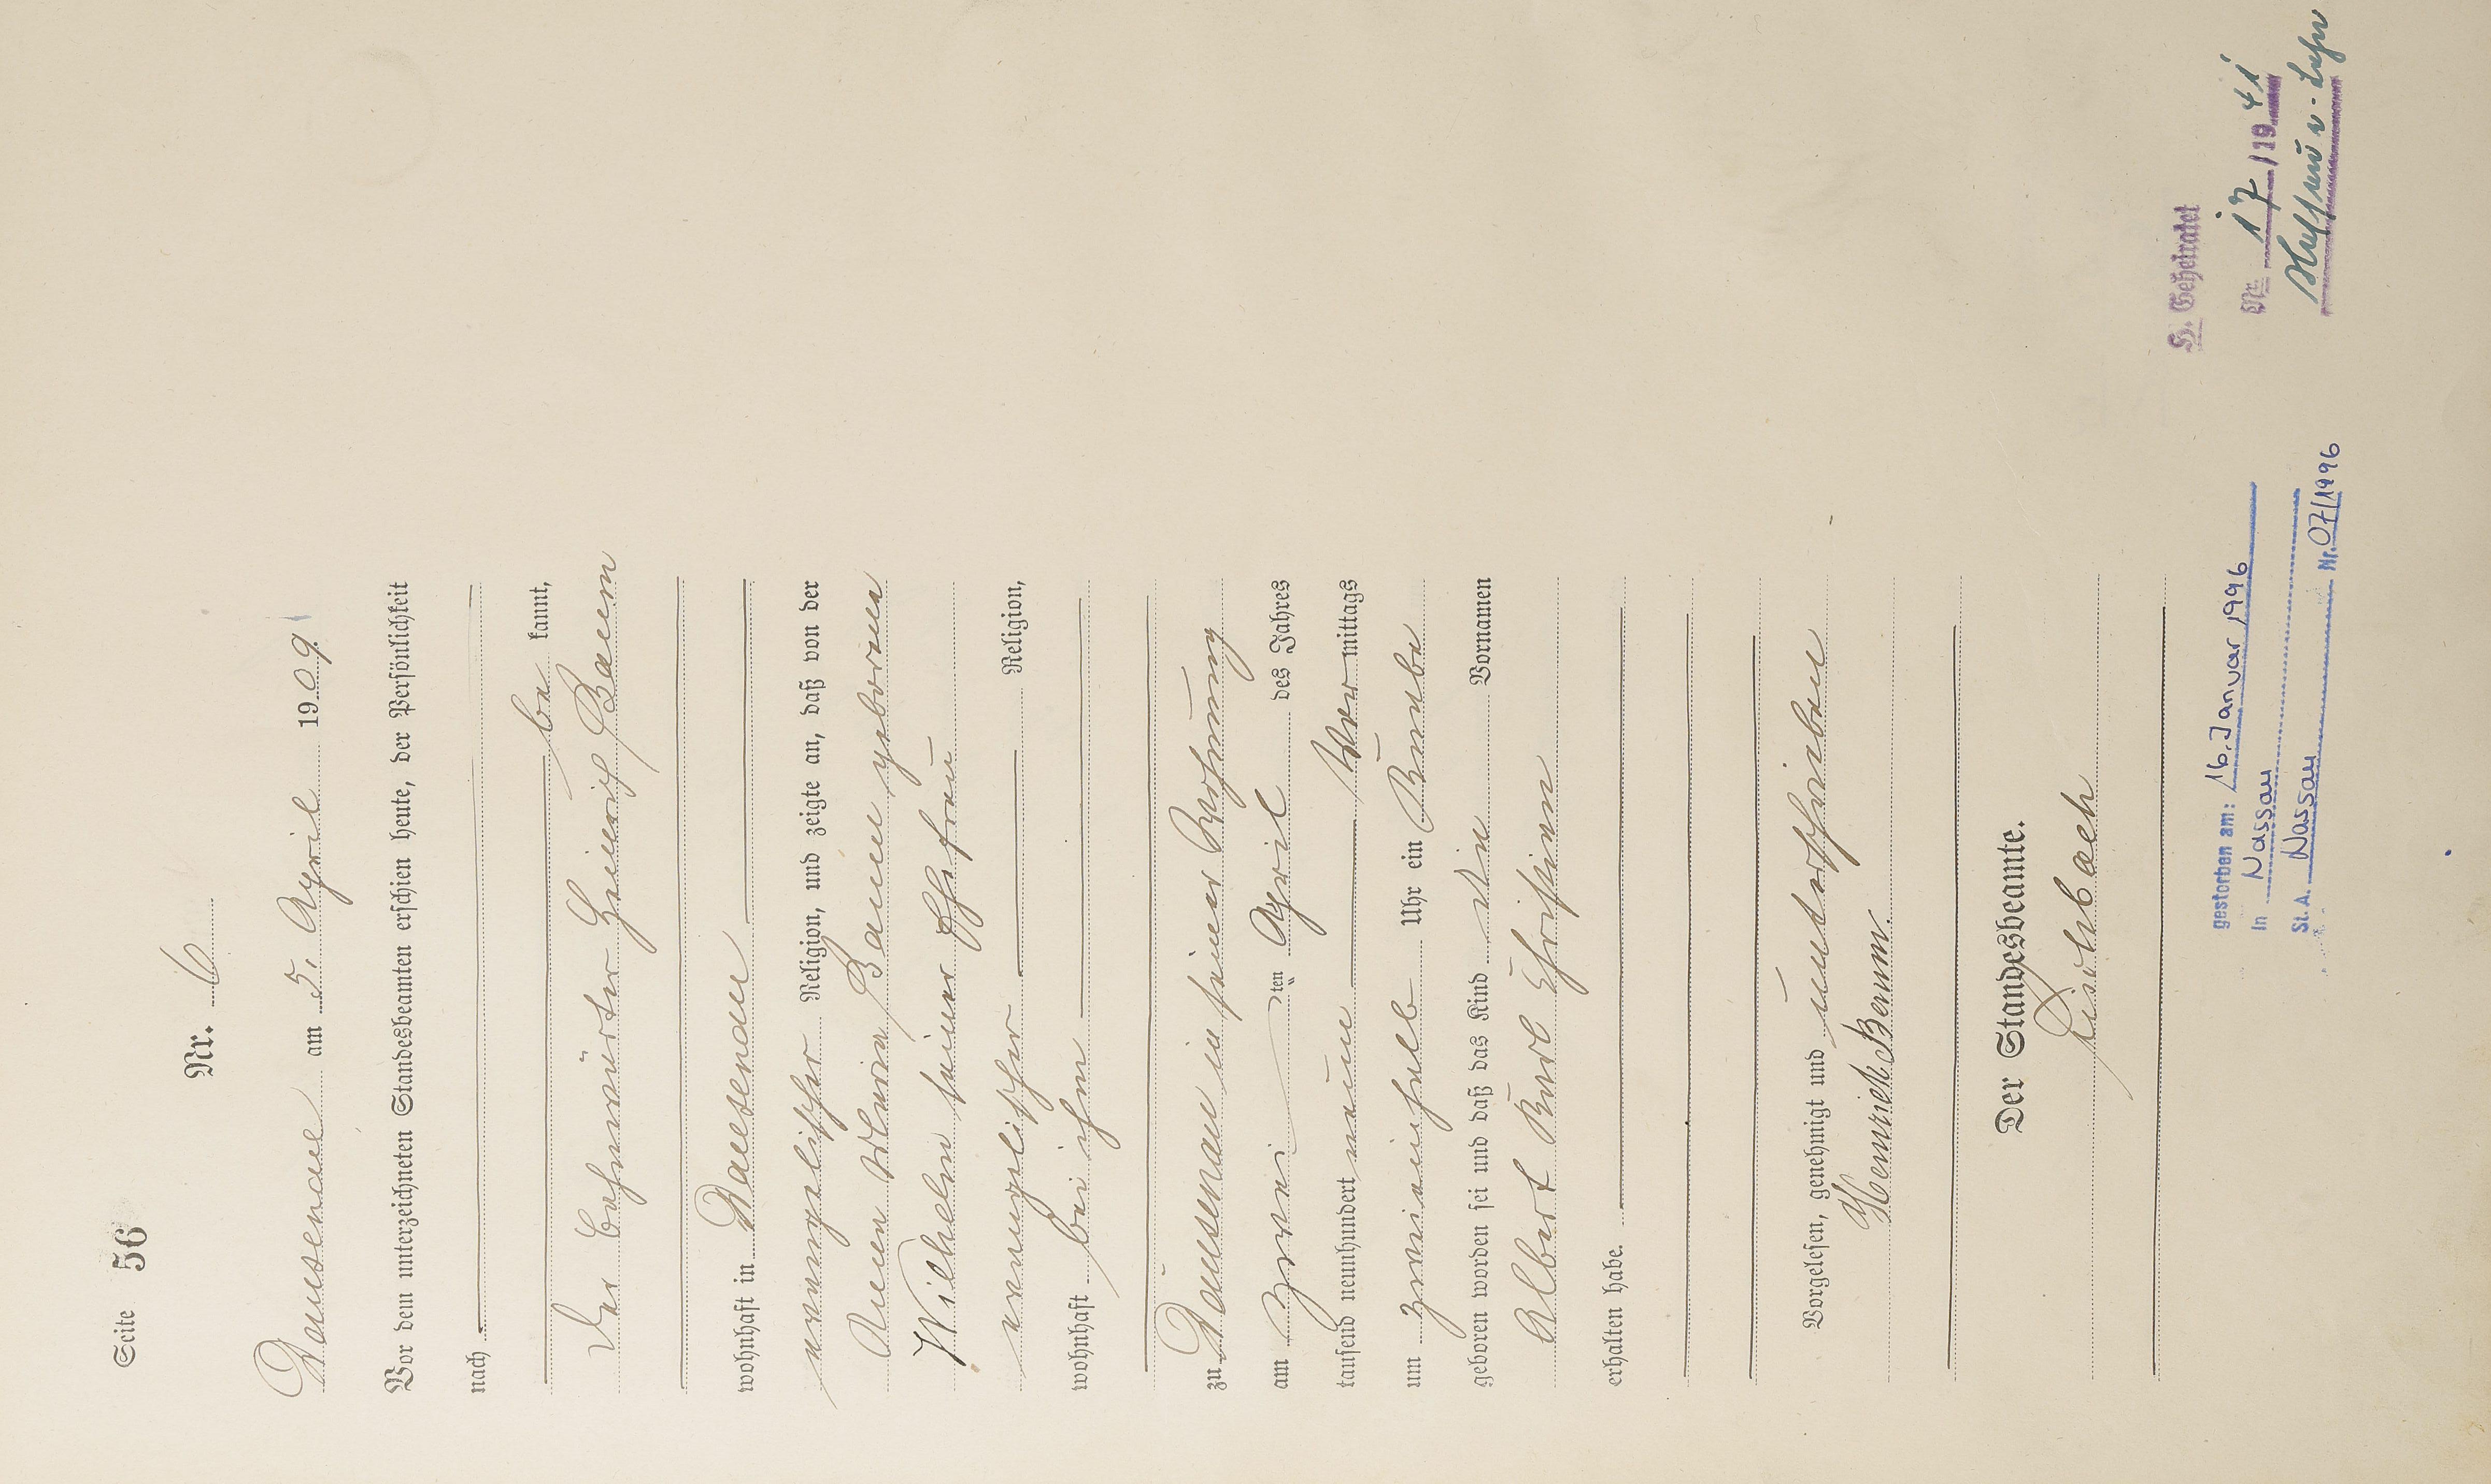 Seite 56
Nr. 6
Dausenau am 5. April 1909
Vor dem unterzeichneten Standesbeamten erschien heute, der Persönlichkeit
nach
be kannt,
der Bahnwärter Heinrich Baum
wohnhaft in Dausenau
evangelischer Religion, und zeigte an, daß von der
Anna Maria Baum geborene
Wilhelm seiner Ehefrau
evangelischer Religion,
wohnhaft bei ihm
zu Dausenau in seiner Wohnung
am zwei ten April des Jahres
tausend neunhundert neun Vor mittags
um zweieinhalb Uhr ein Knabe
geboren worden sei und daß das Kind die Vornamen
Albert Karl Christian
erhalten habe.
Vorgelesen, genehmigt und unterschrieben
Heinrich Baum.
Der Standesbeamte.
Linscheid
gestorben am: 16. Januar 1996
in Nassau
St. A. Nassau Nr. 07/1996
Geheiratet
Nr. 17/1941